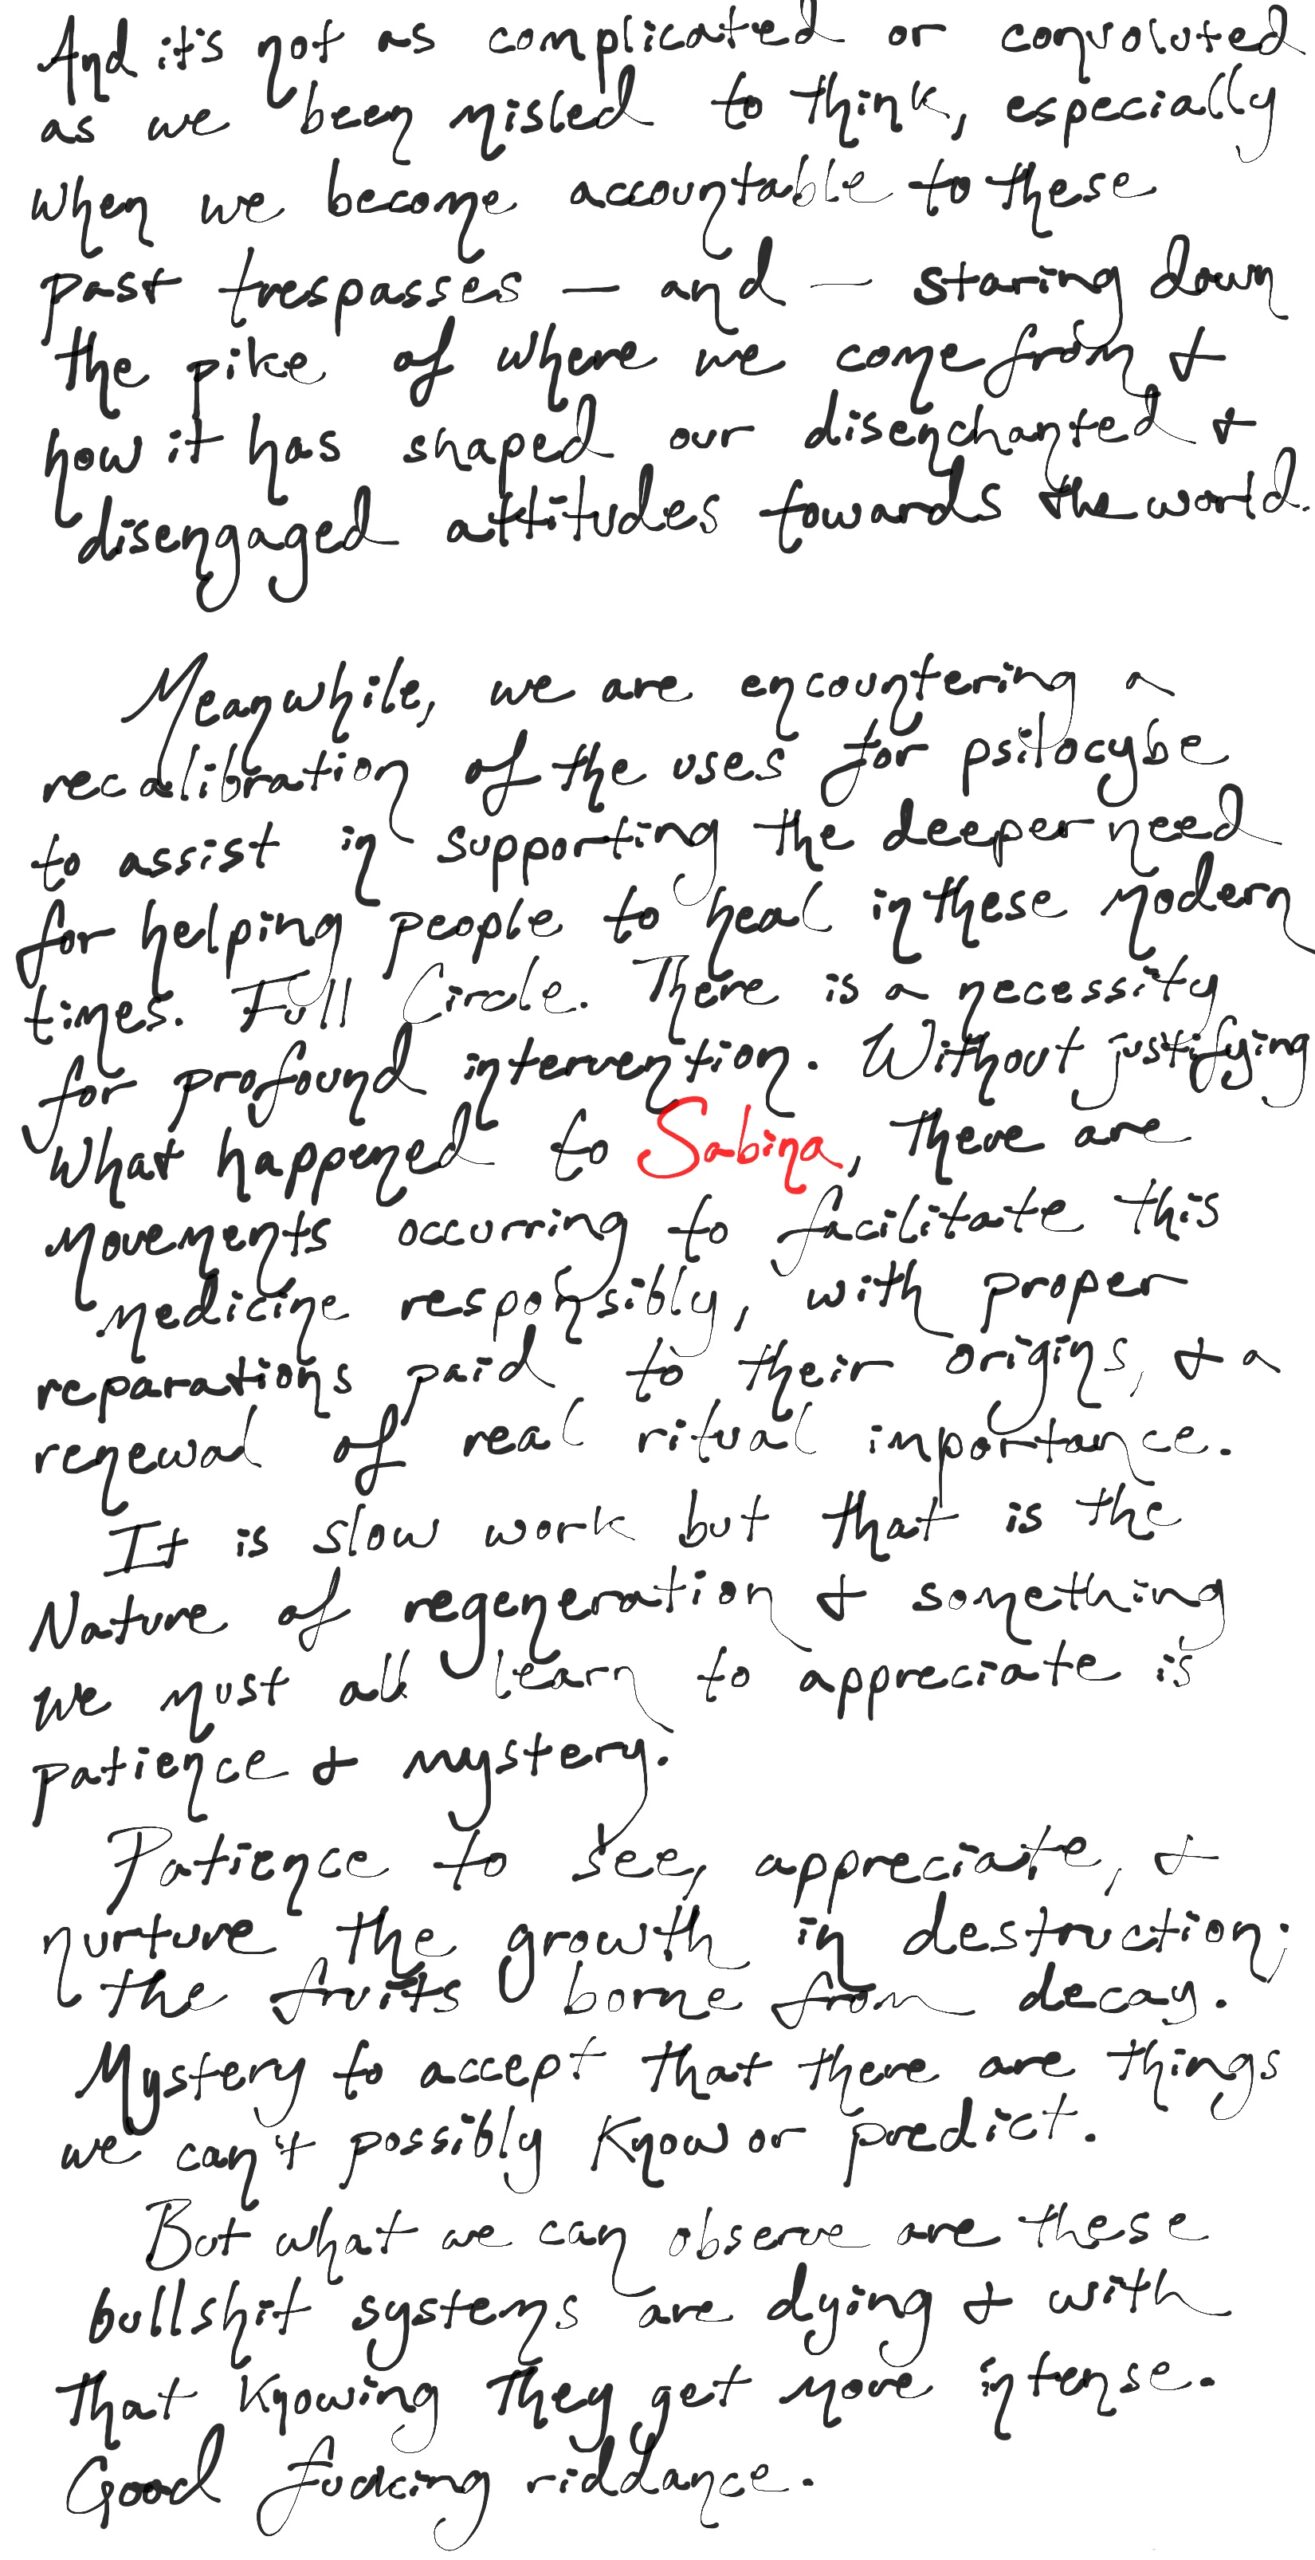 And it's not as complicated or convoluted
as we been misled to think, especially
when we become accountable to these
past trespasses — and — staring down
the pike of where we come from &
how it has shaped our disenchanted &
disengaged attitudes towards the world.
Meanwhile, we are encountering a
recalibration of the uses for psilocybe
to assist in supporting the deeper need
for helping people to heal in these modern
times. Full Circle. There is a necessity
for profound intervention. Without justifying
what happened to Sabina, there are
movements occurring to facilitate this
medicine responsibly, with proper
reparations paid to their origins, & a
renewal of real ritual importance.
It is slow work but that is the
Nature of regeneration & something
we must all learn to appreciate is
patience & mystery.
Patience to see, appreciate, &
nurture the growth in destruction;
the fruits borne from decay.
Mystery to accept that there are things
we can't possibly know or predict.
But what we can observe are these
bullshit systems are dying & with
that knowing they get more intense.
Good fucking riddance.